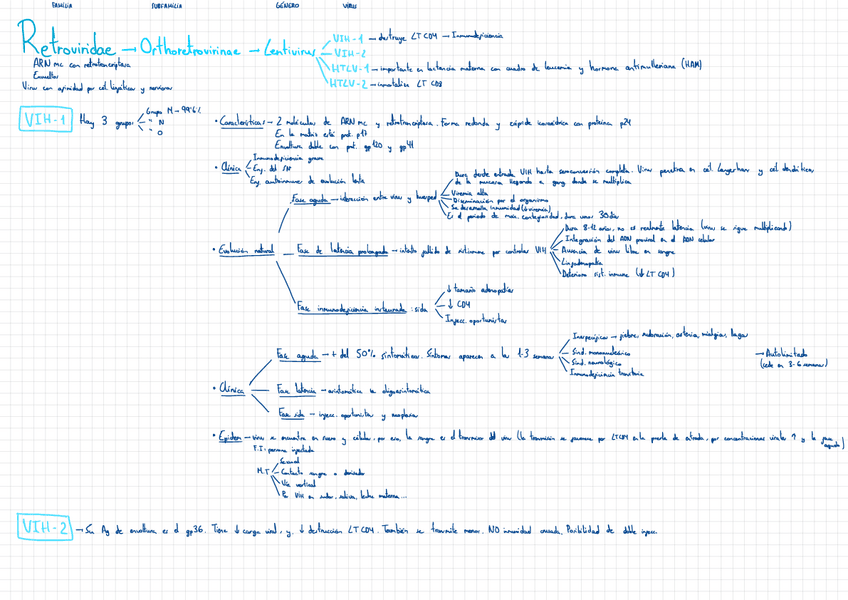 FAMILIA SUBFAMILIA GÉNERO VIRUS
Retroviridae → Orthoretrovirinae → Lentivirus
VIH-1 → destruye LT CD4 → Inmunodeficiencia
VIH-2
HTLV-1 → importante en lactancia materna con cuadro de leucemia y hormona antimulleriana (HAM)
HTLV-2 → inmortaliza LT CD8
ARN mc con retrotranscriptasa
Envueltos
Virus con afinidad por cél linfáticas y nerviosas
VIH-1 Hay 3 grupos
Grupo M → 99.6%
" N
" O
• Características → 2 moléculas de ARN mc y retrotranscriptasa. Forma redonda y cápside icosaédrica con proteína p24
En la matriz está prot. p17
Envoltura doble con prot. gp120 y gp41
• Clínica
Inmunodeficiencia grave
Enf. del SN
Enf. autoinmune de evolución lenta
• Evolución natural
Fase aguda → interacción entre virus y huésped
Dura desde entrada VIH hasta seroconversión completa. Virus penetra en cél Langerhans y cél dendríticas
de la mucosa llegando a gang donde se multiplica
Viremia alta
Diseminación por el organismo
Se desarrolla inmunidad (↓viremia)
Es el periodo de máx. contagiosidad, dura unos 30 días
Fase de latencia prolongada → intento fallido de sist inmune por controlar VIH
Dura 8-12 años, no es realmente latencia (virus se sigue multiplicando)
Integración del ADN proviral en el ADN celular
Ausencia de virus libre en sangre
Linfadenopatía
Deterioro sist. inmune (↓LT CD4)
Fase inmunodeficiencia instaurada: sida
↓ tamaño adenopatías
↓ CD4
Infecc. oportunistas
• Clínica
Fase aguda → + del 50% sintomáticos. Síntomas aparecen a las 1-3 semanas
Inespecíficos → fiebre, sudoración, astenia, mialgias, llagas
Sínd. mononucleósico
Sínd. neurológico
Inmunodeficiencia transitoria
→ Autolimitado
(cede en 3-6 semanas)
Fase latencia → asintomática u oligosintomática
Fase sida → infecc. oportunistas y neoplasias
• Epidem → virus se encuentra en suero y células, por eso, la sangre es el transmisor del virus (la transmisión se produce por LTCD4 en la puerta de entrada, por concentraciones virales ↑ y la fase
aguda)
F.I: persona infectada
M.T
Sexual
Contacto sangre o derivados
Vía vertical
VIH en sudor, saliva, leche materna...
VIH-2 → Su Ag de envoltura es el gp36. Tiene ↓ carga viral, y, ↓ destrucción LT CD4. También se transmite menos. NO inmunidad cruzada. Posibilidad de doble infecc.